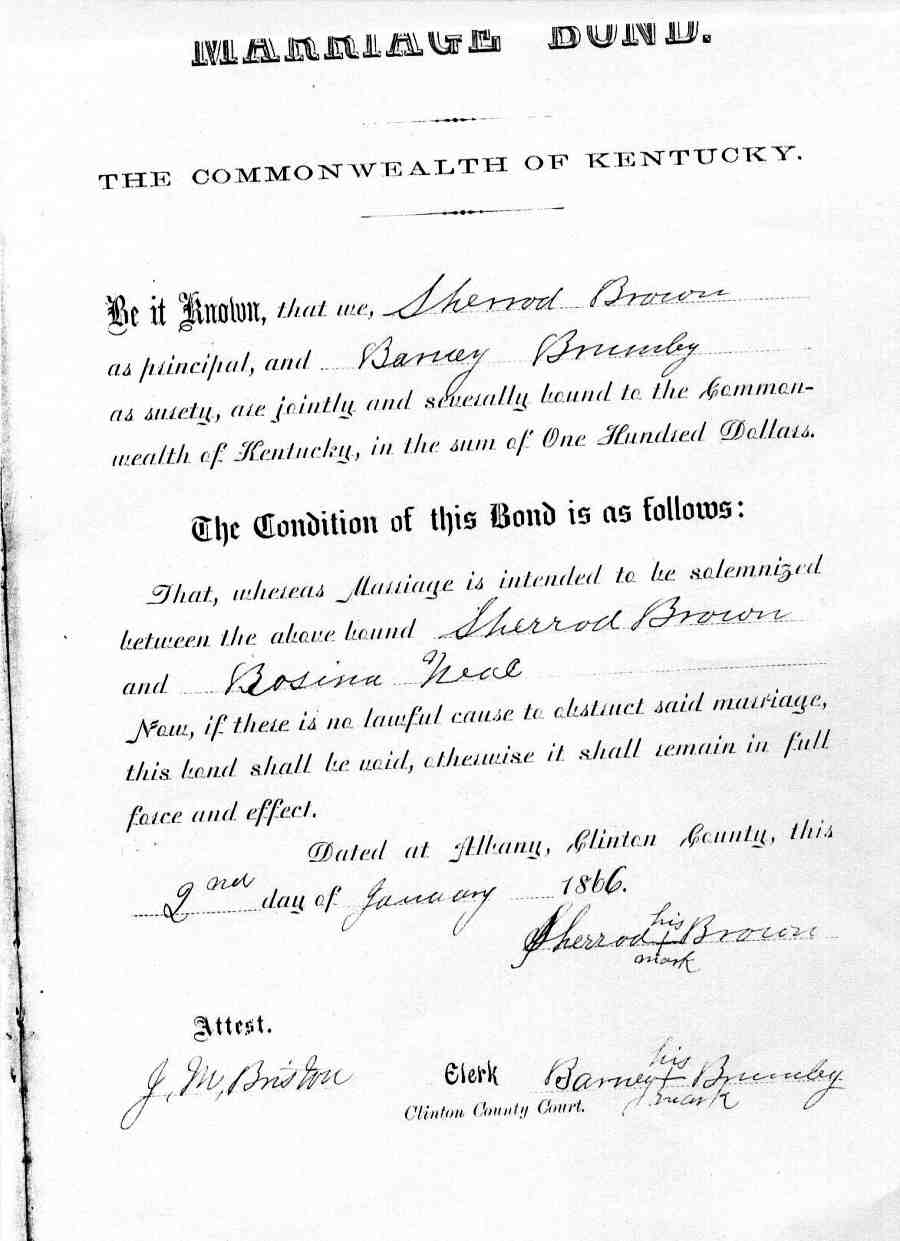 MARRIAGE BOND.
THE COMMONWEALTH OF KENTUCKY.
Be it Known, that we, Sherrod Brown
as principal, and Barney Brumby
as surety, are jointly and severally bound to the Common-
wealth of Kentucky, in the sum of One Hundred Dollars.
The Condition of this Bond is as follows:
That, whereas Marriage is intended to be solemnized
between the above bound Sherrod Brown
and Rosina Neal
Now, if there is no lawful cause to obstruct said marriage,
this bond shall be void, otherwise it shall remain in full
force and effect.
Dated at Albany, Clinton County, this
2nd day of January 1866.
his
Sherrod + Brown
mark
Attest.
his
J. M. Briston Clerk Barney + Brumby
mark
Clinton County Court.